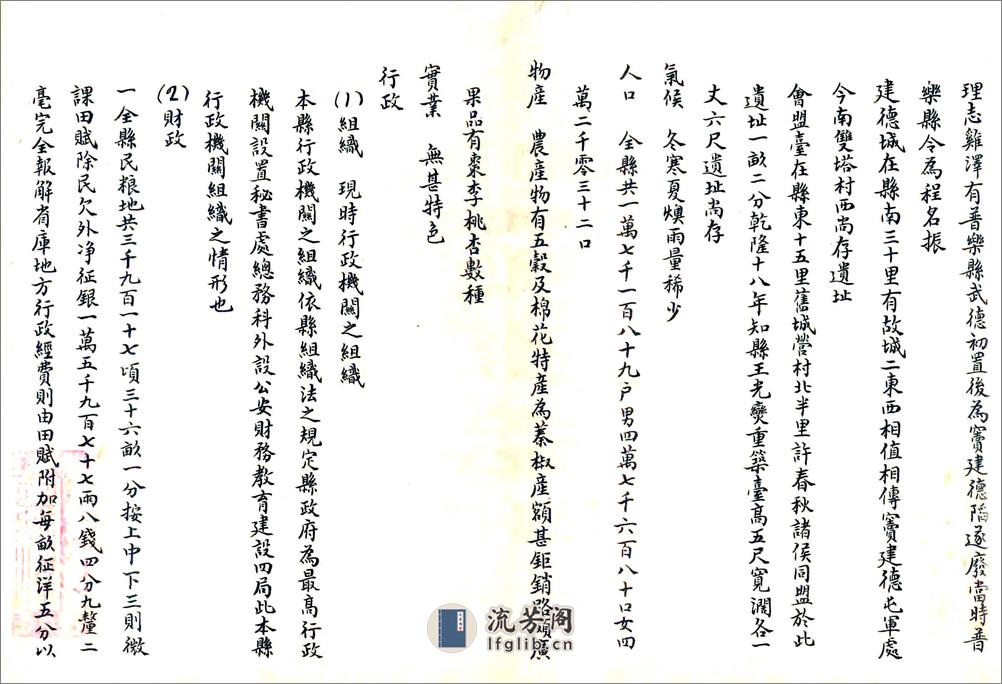 理志雞澤有普樂縣武德初置後為竇建德陷遂廢當時普
樂縣令為程名振
建德城在縣南三十里有故城二東西相值相傳竇建德屯軍處
今南雙塔村西尚存遺址
會盟臺在縣東十五里舊城營村北半里許春秋諸侯同盟於此
遺址一畝二分乾隆十八年知縣王光燮重築臺高五尺寬濶各一
丈六尺遺址尚存
氣候　冬寒夏燠雨量稀少
人口　全縣共一萬七千一百八十九戶男四萬七千六百八十口女四
萬二千零三十二口
物產　農產物有五穀及棉花特產為蓁椒產額甚鉅銷路頗廣
果品有棗李桃杏數種
實業　無甚特色
行政
(1)組織　現時行政機關之組織
本縣行政機關之組織依縣組織法之規定縣政府為最高行政
機關設置秘書處總務科外設公安財務教育建設四局此本縣
行政機關組織之情形也
(2)財政
一全縣民粮地共三千九百一十七頃三十六畝一分按上中下三則徵
課田賦除民欠外净征銀一萬五千九百七十七兩八錢四分九釐二
毫完全報解省庫地方行政經費則由田賦附加每畝征洋五分以
流芳阁
lfglib.cn